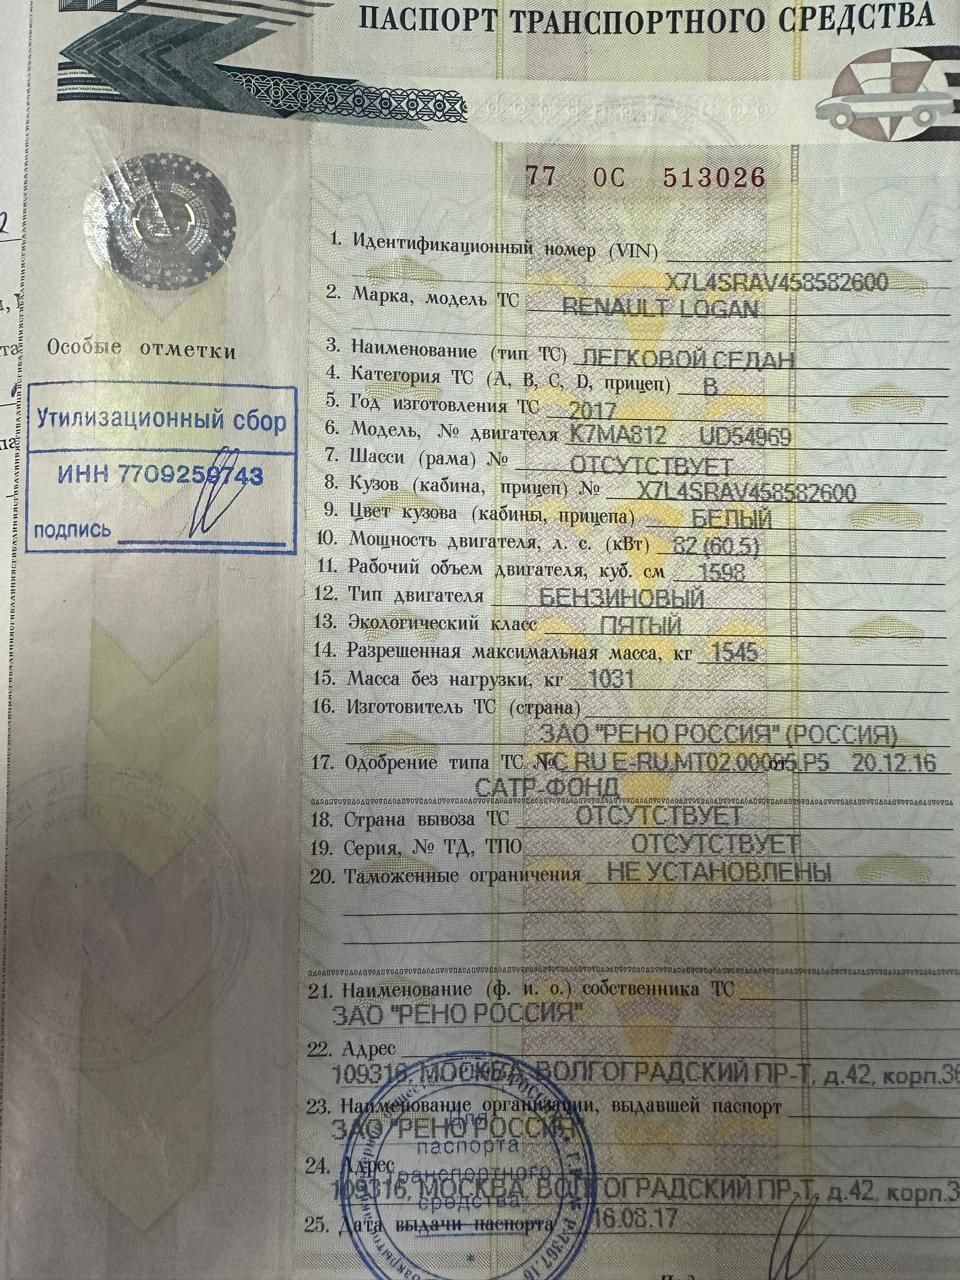 ПАСПОРТ ТРАНСПОРТНОГО СРЕДСТВА
77 ОС 513026
1. Идентификационный номер (VIN)
X7L4SRAV458582600
2. Марка, модель ТС RENAULT LOGAN
3. Наименование (тип ТС) ЛЕГКОВОЙ СЕДАН
4. Категория ТС (A, B, C, D, прицеп) B
5. Год изготовления ТС 2017
6. Модель, № двигателя K7MA812 UD54969
7. Шасси (рама) № ОТСУТСТВУЕТ
8. Кузов (кабина, прицеп) № X7L4SRAV458582600
9. Цвет кузова (кабины, прицепа) БЕЛЫЙ
10. Мощность двигателя, л. с. (кВт) 82 (60.5)
11. Рабочий объем двигателя, куб. см 1598
12. Тип двигателя БЕНЗИНОВЫЙ
13. Экологический класс ПЯТЫЙ
14. Разрешенная максимальная масса, кг 1545
15. Масса без нагрузки, кг 1031
16. Изготовитель ТС (страна)
ЗАО "РЕНО РОССИЯ" (РОССИЯ)
17. Одобрение типа ТС № ТС RU E-RU.MT02.00095.P5 от 20.12.16
САТР-ФОНД
18. Страна вывоза ТС ОТСУТСТВУЕТ
19. Серия, № ТД, ТПО ОТСУТСТВУЕТ
20. Таможенные ограничения НЕ УСТАНОВЛЕНЫ
21. Наименование (ф. и. о.) собственника ТС
ЗАО "РЕНО РОССИЯ"
22. Адрес
109316, МОСКВА, ВОЛГОГРАДСКИЙ ПР-Т, д.42, корп.36
23. Наименование организации, выдавшей паспорт
ЗАО "РЕНО РОССИЯ"
24. Адрес
109316, МОСКВА, ВОЛГОГРАДСКИЙ ПР-Т, д.42, корп.3
25. Дата выдачи паспорта 16.08.17
Особые отметки
Утилизационный сбор
ИНН 7709259743
подпись
Для
паспорта
транспортного
средства